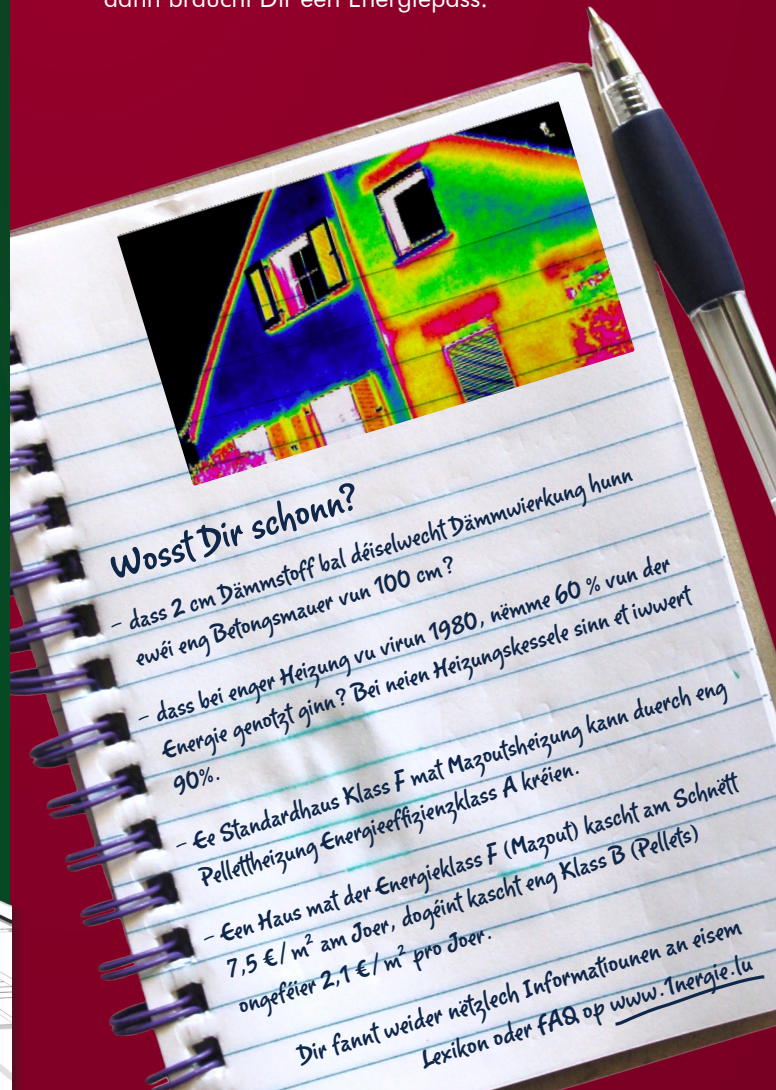 dann braucht Dir een Energiepass.
Wosst Dir schonn?
- dass 2 cm Dämmstoff bal déiselwecht Dämmwierkung hunn
ewéi eng Betongsmauer vun 100 cm?
- dass bei enger Heizung vu virun 1980, nëmme 60 % vun der
Energie genotzt ginn? Bei neien Heizungskessele sinn et iwwert
90%.
- Ee Standardhaus Klass F mat Mazoutsheizung kann duerch eng
Pelletheizung Energieeffizienzklass A kréien.
- Een Haus mat der Energieklass F (Mazout) kascht am Schnëtt
7,5 €/m² am Joer, dogéint kascht eng Klass B (Pellets)
ongeféier 2,1 €/m² pro Joer.
Dir fannt weider nëtzlech Informatiounen an eisem
Lexikon oder fAQ op www.1nergie.lu